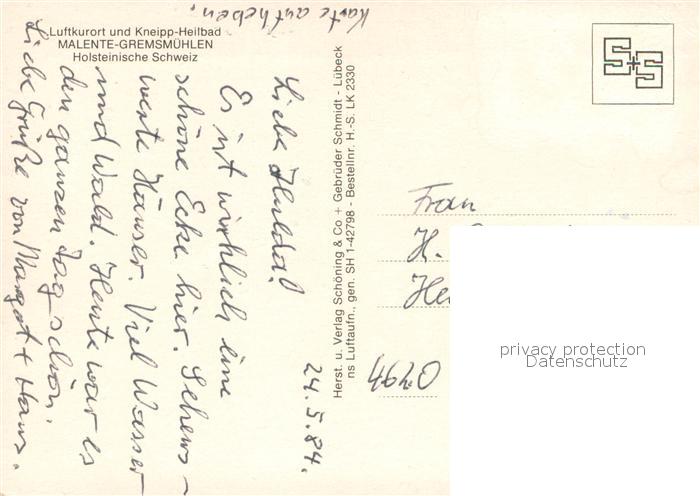 Karte aufheben.
Luftkurort und Kneipp-Heilbad
MALENTE-GREMSMÜHLEN
Holsteinische Schweiz
24.5.84.
Liebe Hulda!
Es ist wirklich eine
schöne Ecke hier. Sehens-
werte Häuser. Viel Wasser
und Wald. Heute war es
den ganzen Tag schön.
Liebe Grüße von Margot + Hans.
Herst. u. Verlag Schöning & Co + Gebrüder Schmidt - Lübeck
ns Luftaufn., gen. SH 1-42798 - Bestellnr. H.-S. LK 2330
S+S
Frau
H.
He
4620
privacy protection
Datenschutz